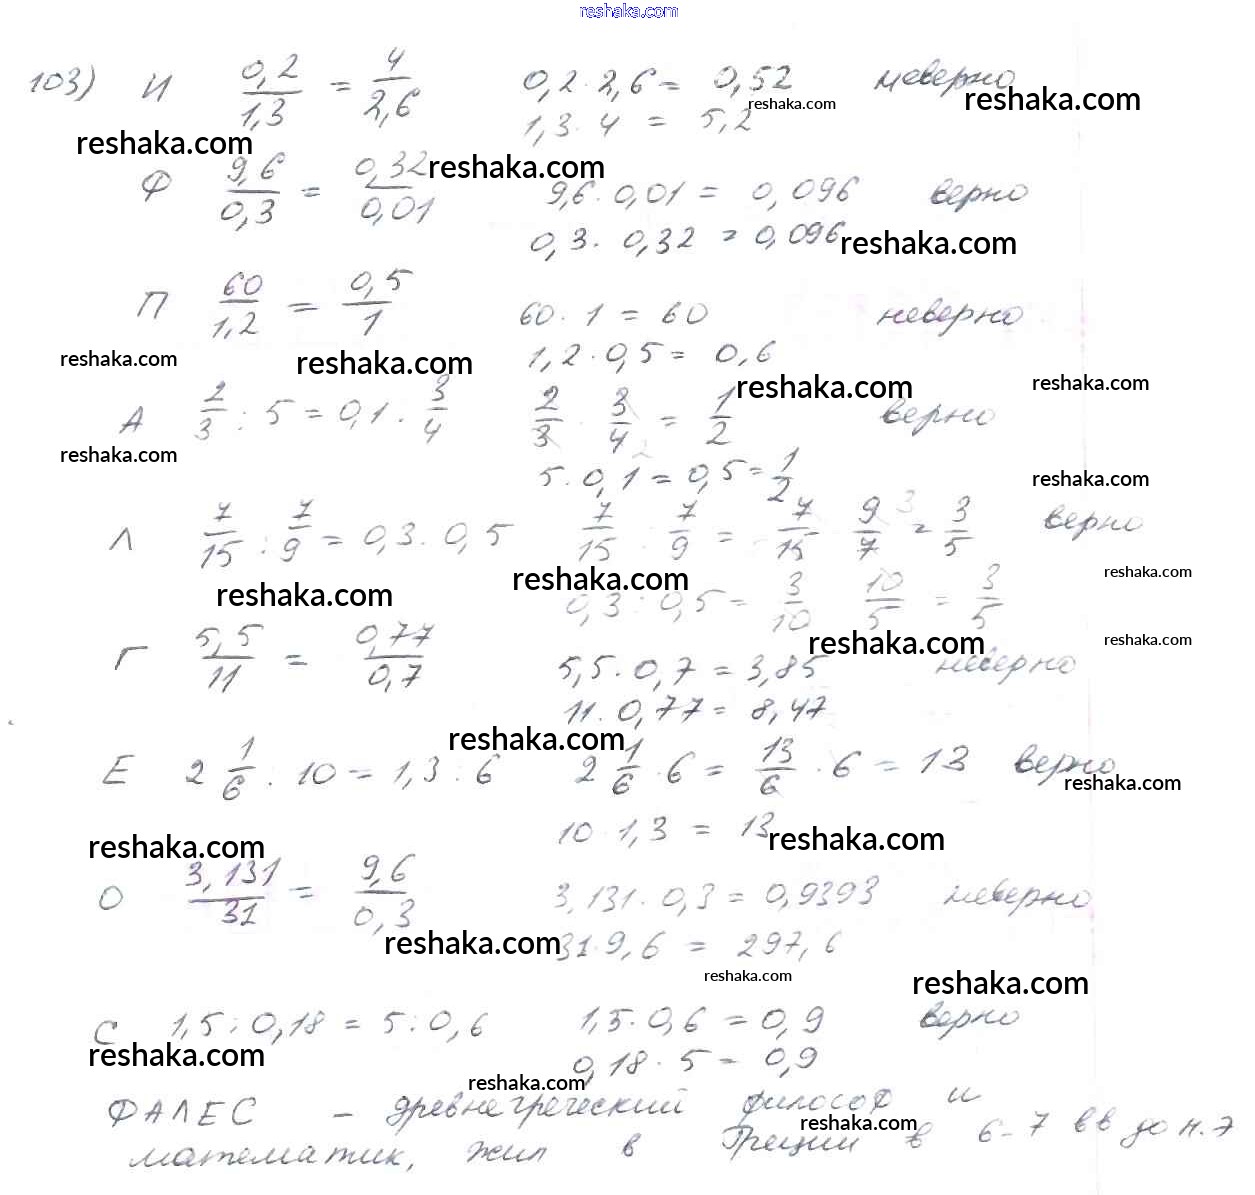 reshaka.com
103) И 0,2/1,3 = 4/2,6 0,2 · 2,6 = 0,52 неверно
1,3 · 4 = 5,2
reshaka.com reshaka.com reshaka.com
Ф 9,6/0,3 = 0,32/0,01 9,6 · 0,01 = 0,096 верно
reshaka.com
0,3 · 0,32 = 0,096
reshaka.com
П 60/1,2 = 0,5/1 60 · 1 = 60 неверно
1,2 · 0,5 = 0,6
reshaka.com reshaka.com reshaka.com reshaka.com
А 2/3 : 5 = 0,1 · 3/4 2/3 · 3/4 = 1/2 верно
5 · 0,1 = 0,5 = 1/2
reshaka.com reshaka.com
Л 7/15 : 7/9 = 0,3 · 0,5 7/15 : 7/9 = 7/15 · 9/7 3 = 3/5 верно
0,3 : 0,5 = 3/10 10/5 = 3/5
reshaka.com reshaka.com reshaka.com
Г 5,5/11 = 0,77/0,7 5,5 · 0,7 = 3,85 неверно
11 · 0,77 = 8,47
reshaka.com reshaka.com
Е 2 1/6 : 10 = 1,3 : 6 2 1/6 · 6 = 13/6 · 6 = 13 верно
10 · 1,3 = 13
reshaka.com reshaka.com reshaka.com reshaka.com
О 3,131/31 = 9,6/0,3 3,131 · 0,3 = 0,9393 неверно
31 · 9,6 = 297,6
reshaka.com reshaka.com reshaka.com
С 1,5 : 0,18 = 5 : 0,6 1,5 · 0,6 = 0,9 верно
0,18 · 5 = 0,9
reshaka.com reshaka.com
ФАЛЕС – древнегреческий философ и
математик, жил в Греции в 6-7 вв до н.э
reshaka.com